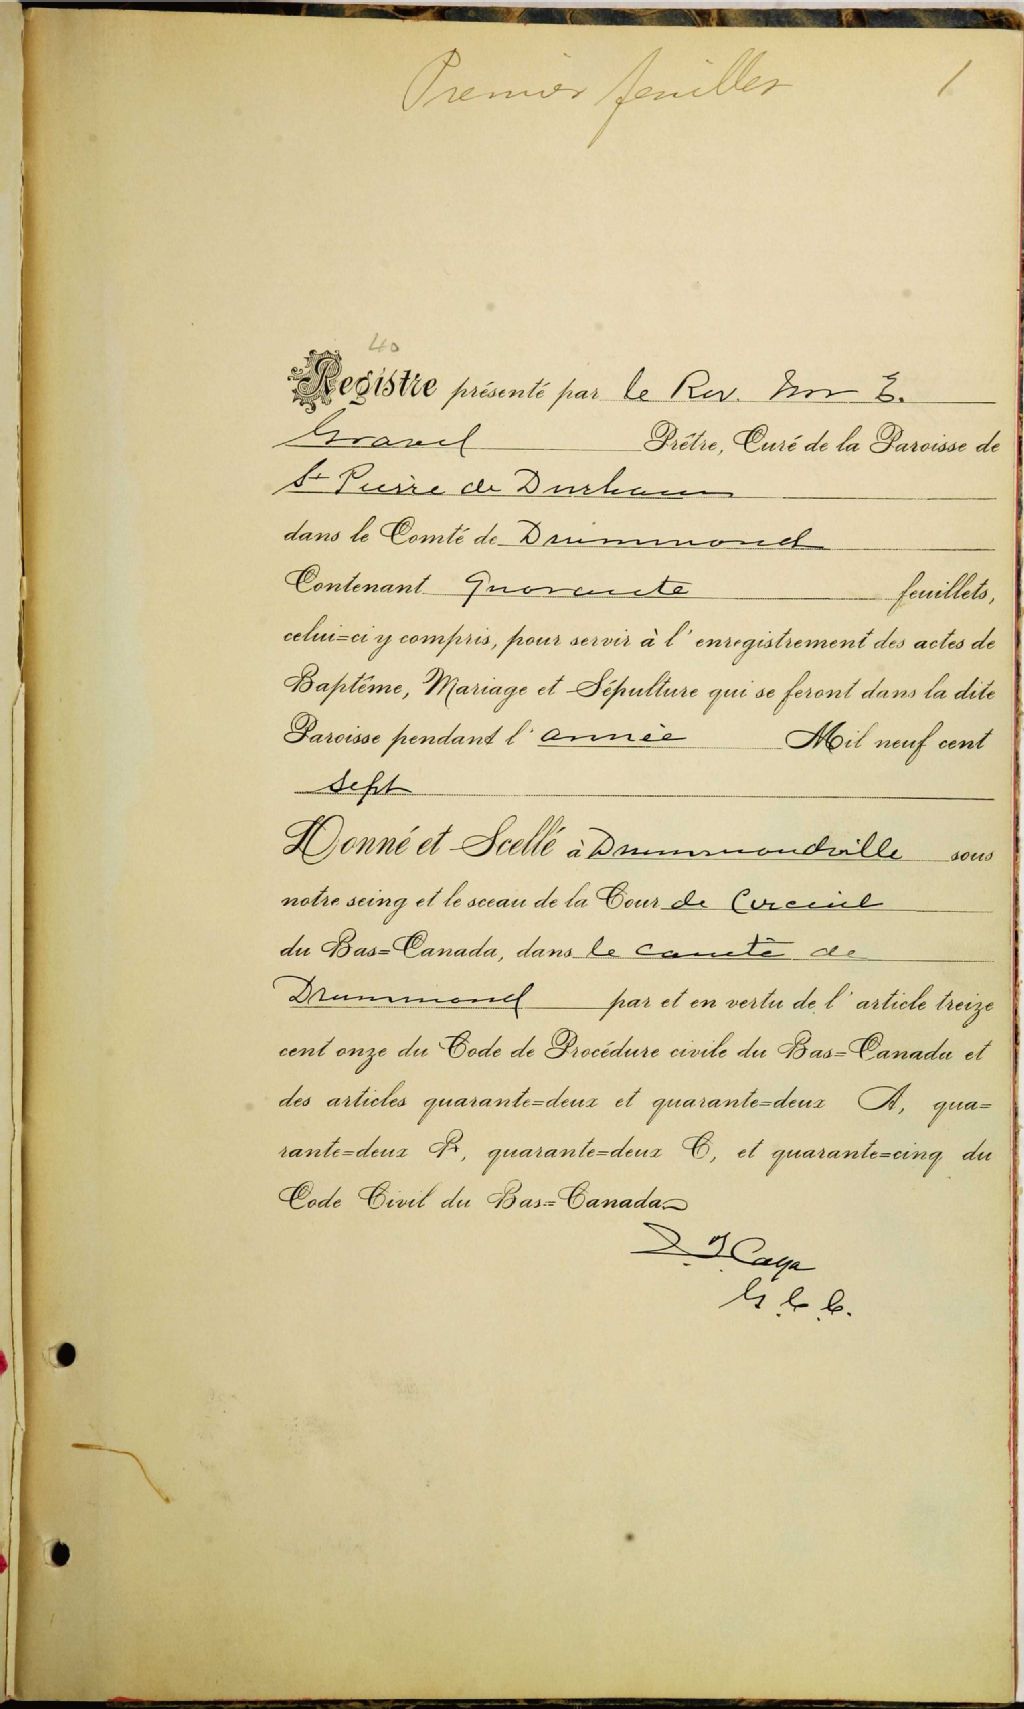 Premier feuillet 1
40
Registre présenté par le Rev. Mr E.
Gravel Prêtre, Curé de la Paroisse de
St Pierre de Durham
dans le Comté de Drummond
Contenant Quarante feuillets,
celui=ci y compris, pour servir à l'enregistrement des actes de
Baptême, Mariage et Sépulture qui se feront dans la dite
Paroisse pendant l'année Mil neuf cent
sept
Donné et Scellé à Drummondville sous
notre seing et le sceau de la Cour de Circuit
du Bas=Canada, dans le comté de
Drummond par et en vertu de l'article treize
cent onze du Code de Procédure civile du Bas=Canada et
des articles quarante=deux et quarante=deux A, qua=
rante=deux B, quarante=deux C, et quarante=cinq du
Code Civil du Bas=Canada
J Caya
G. C. C.